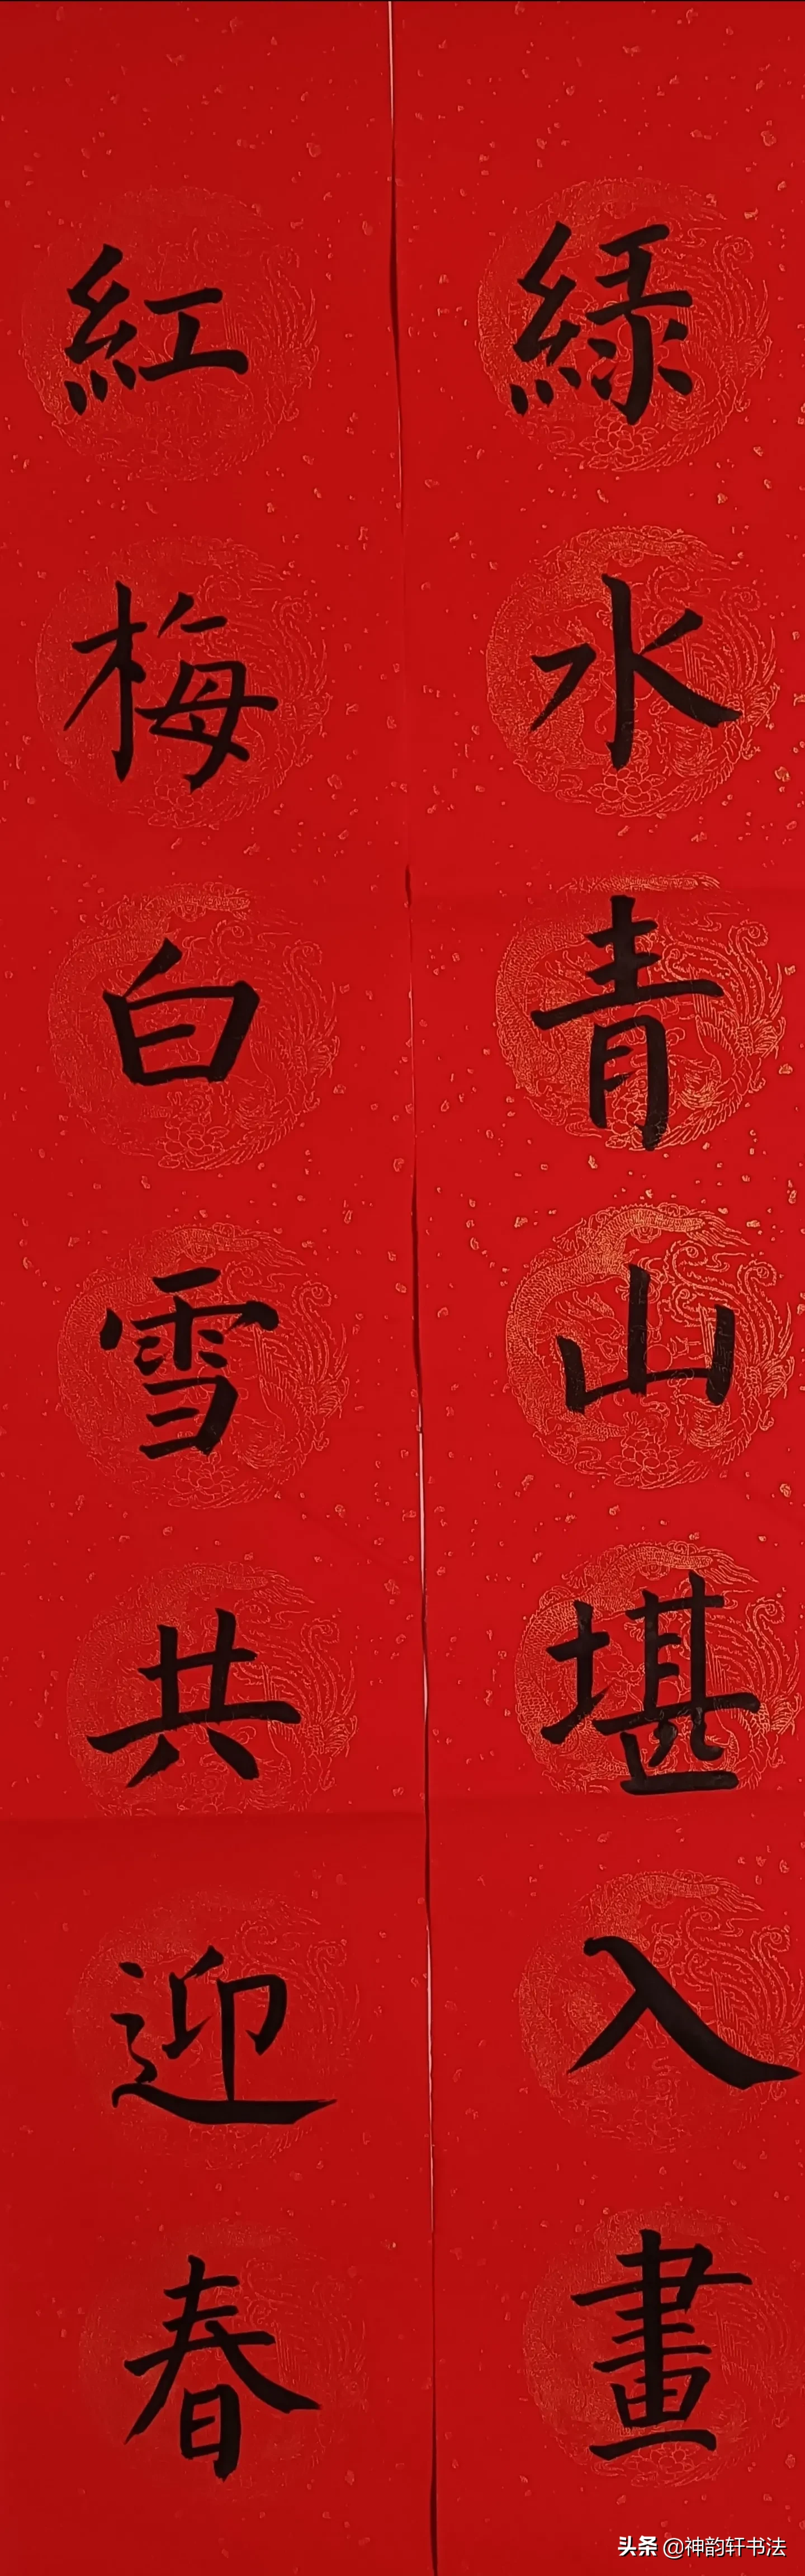 綠水青山堪入畫
紅梅白雪共迎春
头条 @神韵轩书法